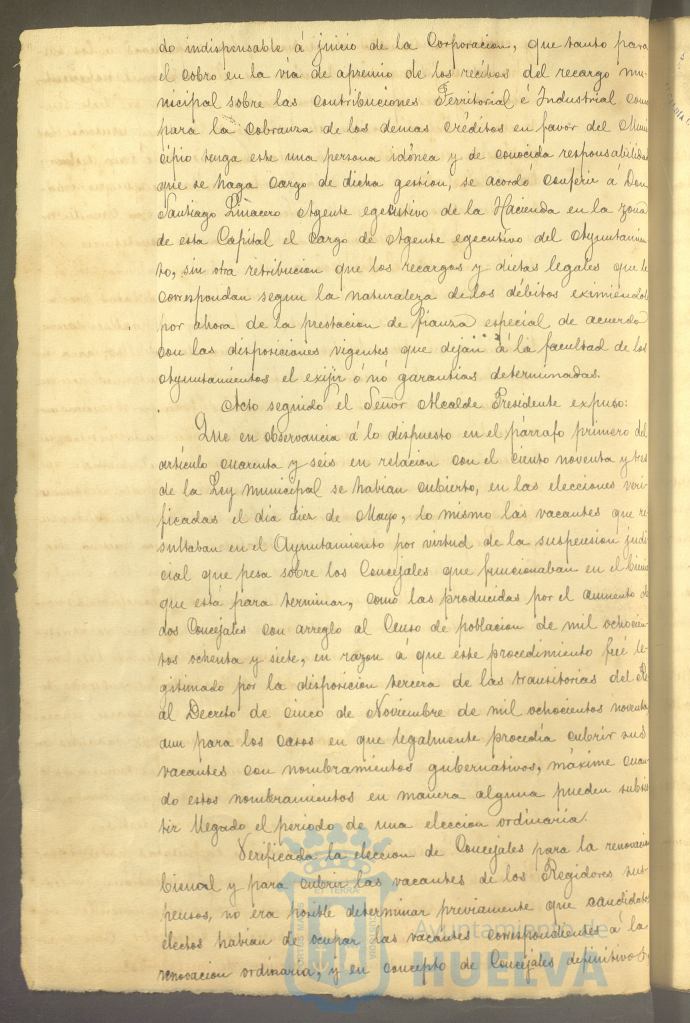 do indispensable á juicio de la Corporacion, que tanto para
el cobro en la via de apremio de los recibos del recargo mu-
nicipal sobre las contribuciones Territorial é Industrial como
para la cobranza de los demas créditos en favor del Muni
cipio tenga este una persona idónea y de conocida responsabilidad
que se haga cargo de dicha gestion, se acordó conferir á Don
Santiago Piñacero Agente egecutivo de la Hacienda en la zona
de esta Capital el cargo de Agente egecutivo del Ayuntamien
to, sin otra retribucion que los recargos y dietas legales que le
correspondan segun la naturaleza de los débitos eximiéndole
por ahora de la prestacion de fianza especial de acuerdo
con las disposiciones vigentes que dejan á la facultad de los
Ayuntamientos el exijir ó nó garantias determinadas.
Acto seguido el Señor Alcalde Presidente expuso:
Que en observancia á lo dispuesto en el párrafo primero del
artículo cuarenta y seis en relacion con el ciento noventa y tres
de la Ley Municipal se habian cubierto, en las elecciones veri-
ficadas el dia diez de Mayo, lo mismo las vacantes que re-
sultaban en el Ayuntamiento por virtud de la suspension judi
cial que pesa sobre los Concejales que funcionaban en el bienio
que está para terminar, como las producidas por el aumento de
dos Concejales con arreglo al Censo de poblacion de mil ochocien-
tos ochenta y siete, en razon á que este procedimiento fué le-
gitimado por la disposicion tercera de las transitorias del Re
al Decreto de cinco de Noviembre de mil ochocientos noventa,
aun para los casos en que legalmente procedia cubrir sus
vacantes con nombramientos gubernativos, máxime cuan-
do estos nombramientos en manera alguna pueden subsis
tir llegado el periodo de una eleccion ordinaria.
Verificada la eleccion de Concejales para la renovacion
bienal y para cubrir las vacantes de los Regidores sus-
pensos, no era posible determinar previamente que candidatos
electos habian de ocupar las vacantes correspondientes á la
renovacion ordinaria, y en concepto de Concejales definitivos
Ayuntamiento de
HUELVA